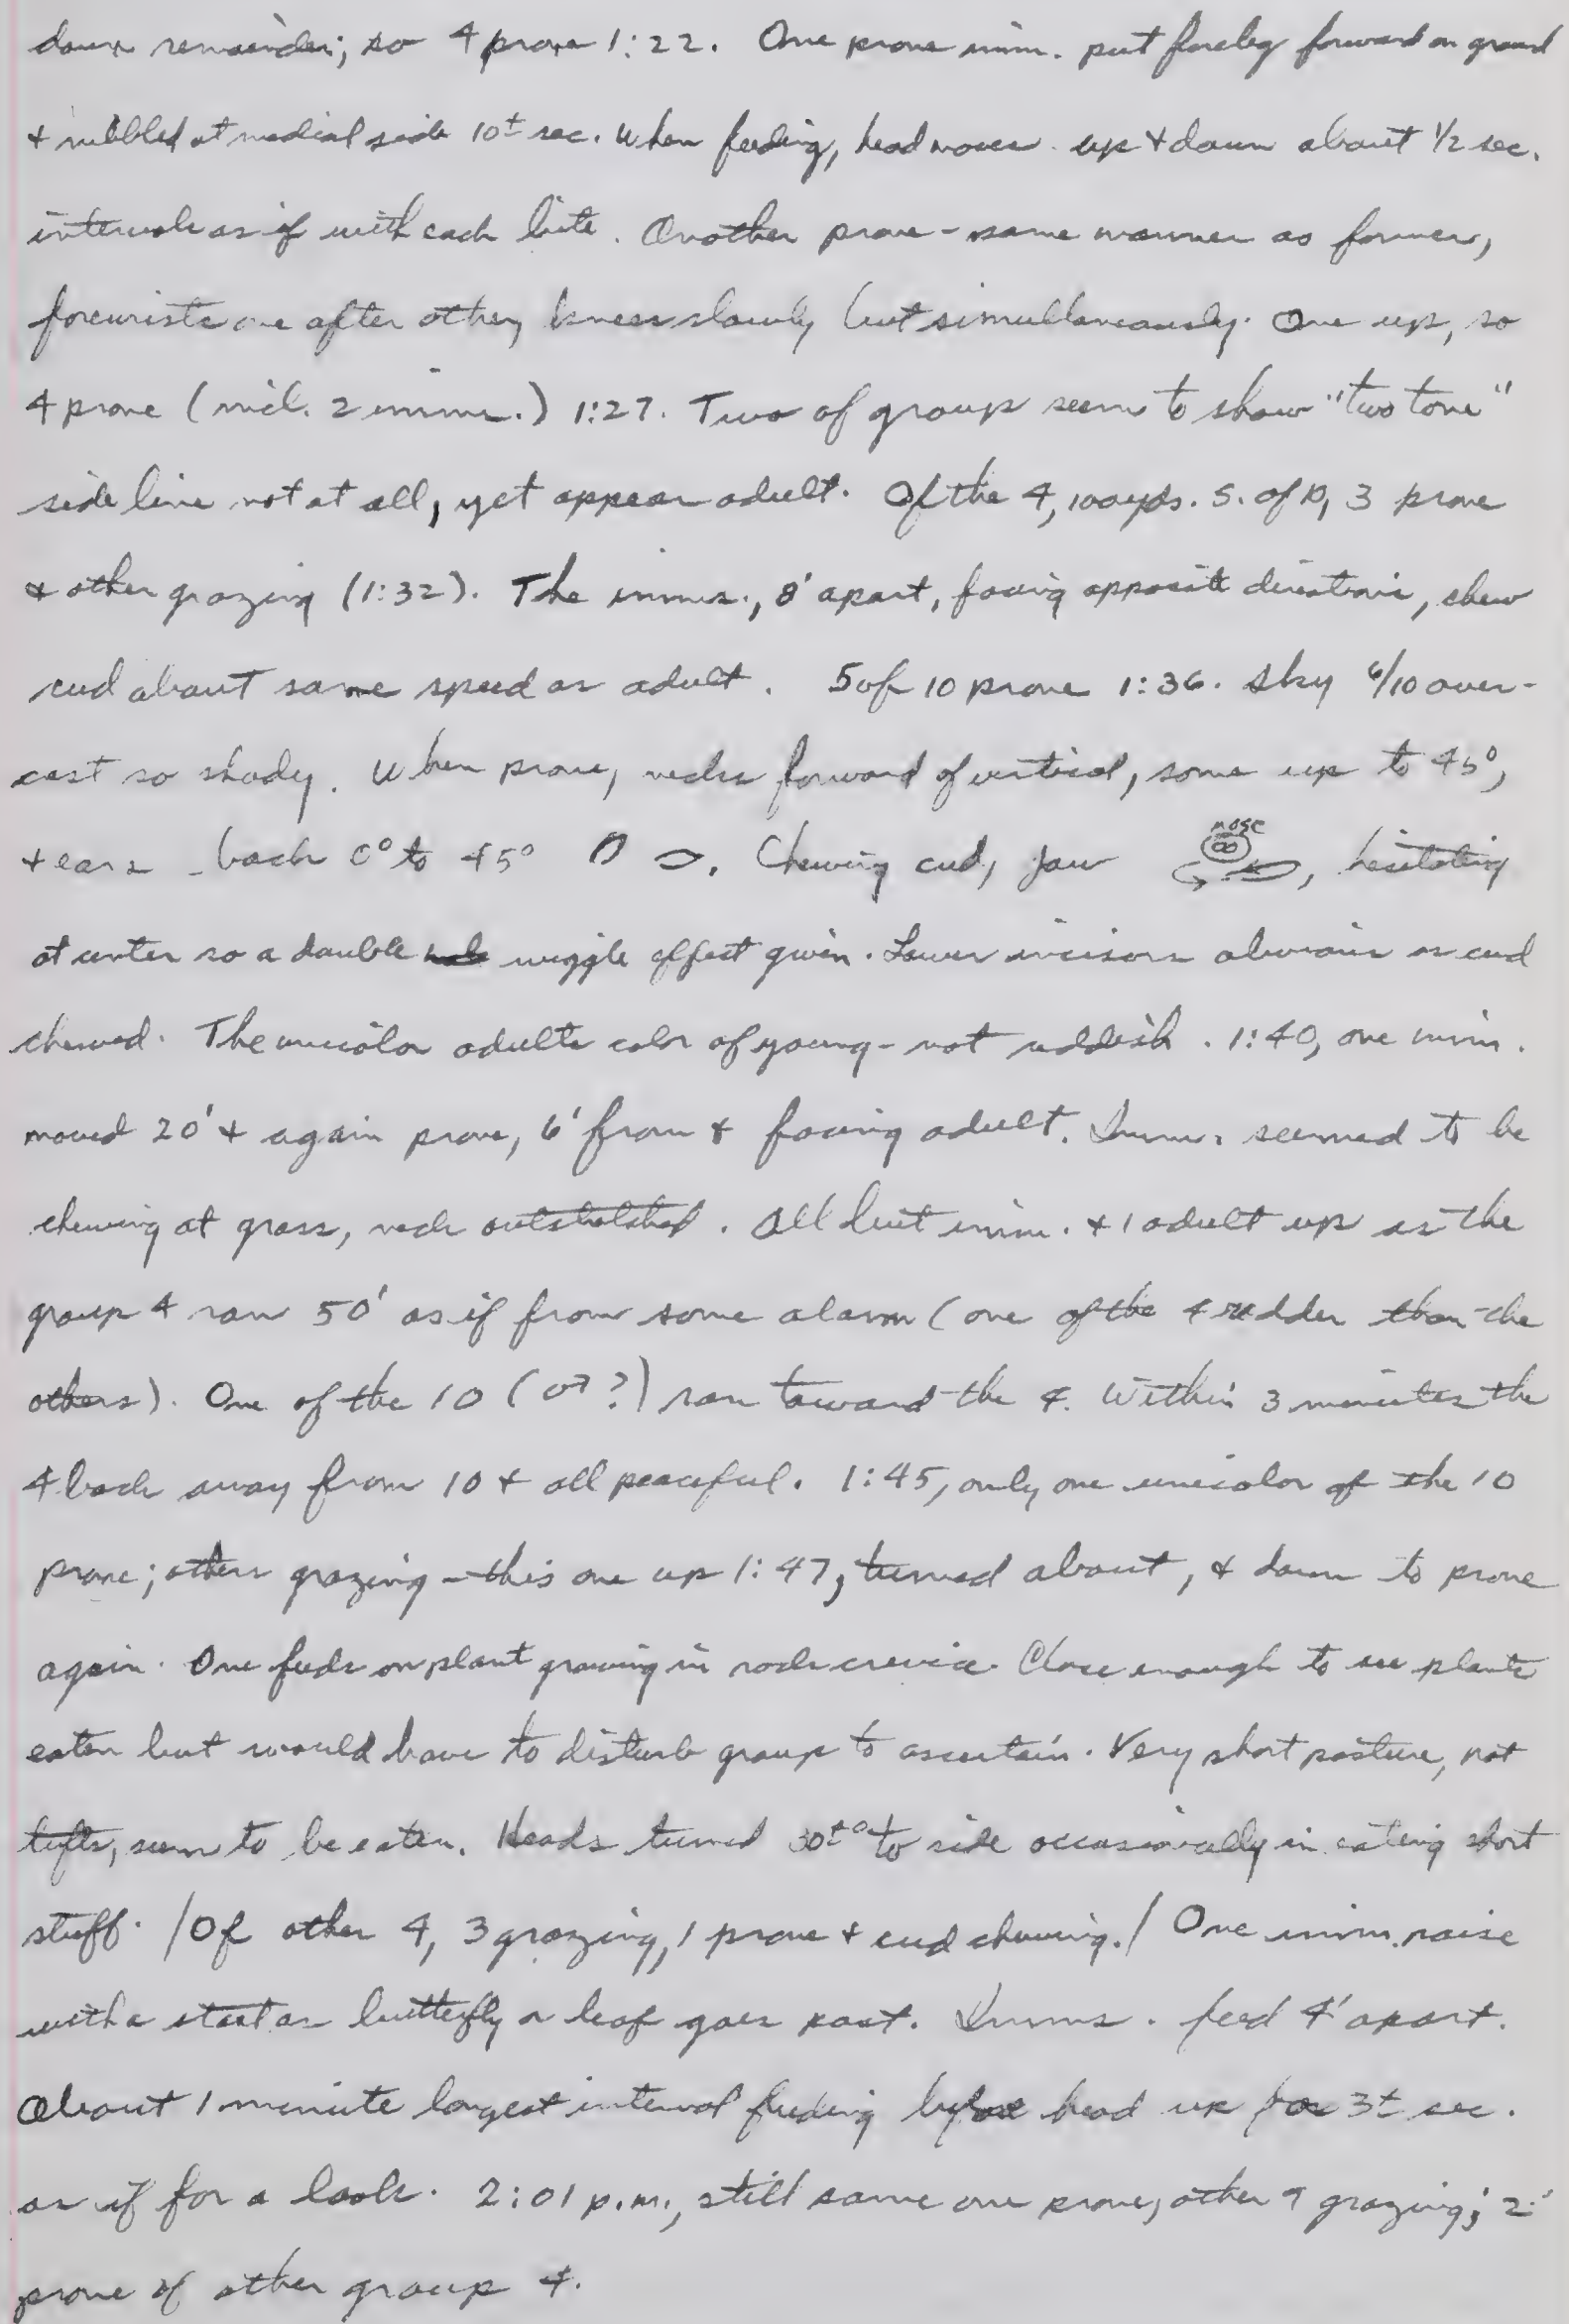 down remainder; so 4 prone 1:22. One prone imm. put foreleg forward on ground
+ nibbled at medial side 10± sec. When feeding, head moves up + down about 1/2 sec.
intervals as if with each bite. Another prone - same manner as former,
forewrists one after other, knees slowly but simultaneously. One up, so
4 prone (incl. 2 imms.) 1:27. Two of group seem to show "two tone"
side line not at all, yet appear adult. Of the 4, 100 yds. S. of 10, 3 prone
& other grazing (1:32). The imms., 8' apart, facing opposite directions, chew
cud about same speed as adult. 5 of 10 prone 1:36. Sky 6/10 over-
cast so shady. When prone, necks forward of vertical, some up to 45°,
+ ears back 0° to 45° . Chewing cud, jaw nose , hesitating
at center so a double wiggle effect given. Lower incisors obvious as cud
chewed. The unicolor adults color of young - not reddish. 1:40, one imm.
moved 20' + again prone, 6' from & facing adult. Imm. seemed to be
chewing at grass, neck outstretched. All but imm. + 1 adult up as the
group 4 ran 50' as if from some alarm (one of the 4 redder than the
others). One of the 10 (♂?) ran toward the 4. Within 3 minutes the
4 back away from 10 + all peaceful. 1:45, only one unicolor of the 10
prone; others grazing - this one up 1:47, turned about, & down to prone
again. One feeds on plant growing in rock crevice. Close enough to see plants
eaten but would have to disturb group to ascertain. Very short pasture, not
tufts, seem to be eaten. Heads turned 30±° to side occasionally in eating short
stuff. / Of other 4, 3 grazing, 1 prone + cud chewing. / One imm. raise
with a start as butterfly or leaf goes past. Imms. feed 4' apart.
About 1 minute longest interval feeding before head up for 3± sec.
as if for a look. 2:01 p.m., still same one prone, other 9 grazing; 2
prone of other group 4.